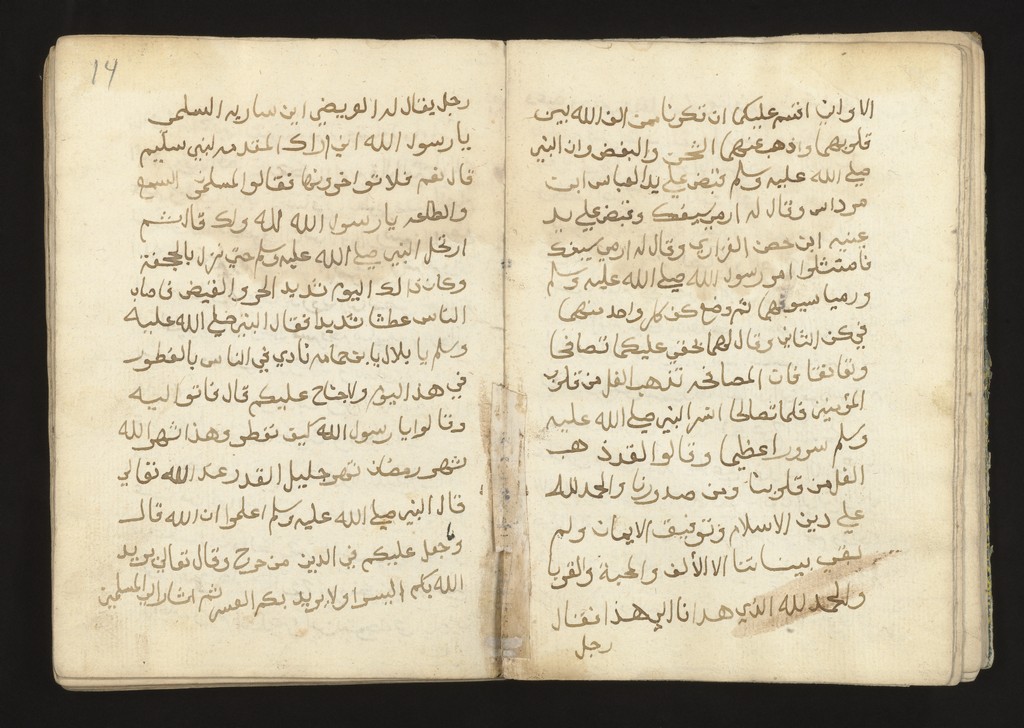 الا واني اقسم عليكما ان تكونا ممن الف الله بين
قلوبهما واذهب عنهما الشحن والبغض وان النبي
صلي الله عليه وسلم قبض علي يد العباس ابن
مرداس وقال له ارمي سيفك وقبض علي يد
عينه ابن حصن الفزاري وقال له ارمي سيفك
فامتثلوا امر رسول الله صلي الله عليه وسلم
ورميا سيوفهما ثم وضع كف كل واحد منهما
في كف الثاني وقال لهما بحقي عليكما تصافحا
وتعانقا فان المصافحه تذهب الغل من قلوب
المؤمنين فلما تصالحا انسر النبي صلي الله عليه
وسلم سرورا عظيما وقالوا لقد ذهب
الغل من قلوبنا ومن صدورنا والحمد لله
علي دين الاسلام وتوفيق الايمان ولم
يبقي بيننا الا الألف والمحبة والقربا
والحمد لله الذي هدانا الي هذا فقال
رجل
14
رجل يقال له ابن ساريه السلمي
يا رسول الله اني اراك المقدمه لبني سليم
قال نعم فلا تواخرونها فقالوا المسلمين السمع
والطاعه يا رسول الله لله ولك قال ثم
ارتحل النبي صلي الله عليه وسلم حتي نزل بالجحفة
وكان ذالك اليوم شديد الحر والقيض فاصاب
الناس عطشا شديدا فقال النبي صلي الله عليه
وسلم يا بلال يا بن حمامه نادي في الناس بالفطور
في هذا اليوم ولا جناح عليكم قال فاتوا اليه
وقالوا يا رسول الله كيف نفطر وهذا شهر الله
شهر رمضان شهر جليل القدر عند الله تعالي
قال النبي صلي الله عليه وسلم اعلموا ان الله قال
وما جعل عليكم في الدين من حرج وقال تعالي يريد
الله بكم اليسر ولا يريد بكم العسر ثم اشار الي المسلمين